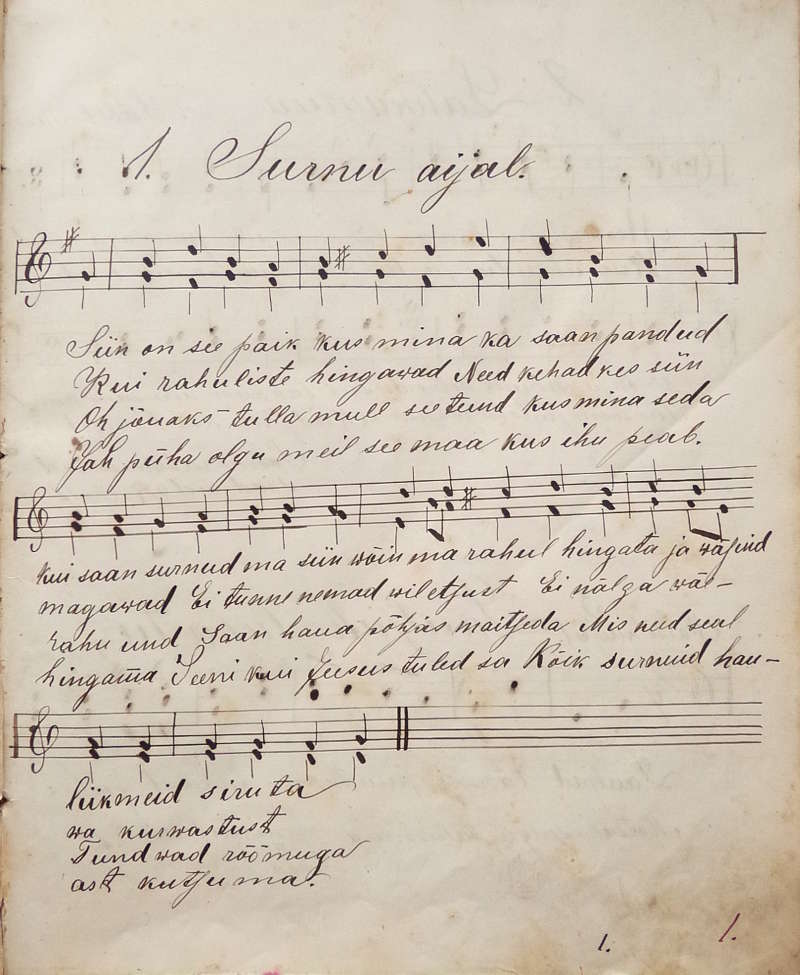 1. Surnu aijal.
Siin on see paik kus mina ka saan pandud
Kui rahuliste hingawad Need kehad kes siin
Oh jõuaks tulla mull see tund kus mina seda
Jah püha olgu meil see maa kus ihu peab.
kui saan surnud ma siin wõin ma rahul hingata ja wäsind
magawad Ei tunne nemad wiletsust Ei nälga wäe-
rahu und Saan haua põhjas maitseda Mis need seal
hingama Seeni kui Jeesus tuled sa Kõik surnuid hau-
liikmeid siruta
wa kurwastust
Tundwad rõõmuga
ast kutsuma.
1. 1.